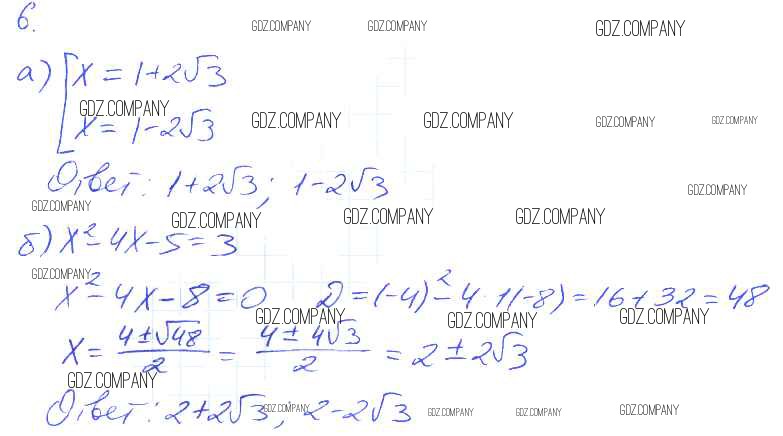 6.
GDZ.COMPANY GDZ.COMPANY GDZ.COMPANY
а) [ x = 1+2√3
GDZ.COMPANY
x = 1-2√3
GDZ.COMPANY GDZ.COMPANY GDZ.COMPANY GDZ.COMPANY
Ответ: 1+2√3; 1-2√3
GDZ.COMPANY
GDZ.COMPANY GDZ.COMPANY GDZ.COMPANY GDZ.COMPANY
б) x²-4x-5=3
GDZ.COMPANY
x²-4x-8=0 D=(-4)²-4·1(-8)=16+32=48
GDZ.COMPANY GDZ.COMPANY GDZ.COMPANY
x = (4±√48)/2 = (4±4√3)/2 = 2±2√3
GDZ.COMPANY
Ответ: 2+2√3; 2-2√3
GDZ.COMPANY GDZ.COMPANY GDZ.COMPANY GDZ.COMPANY